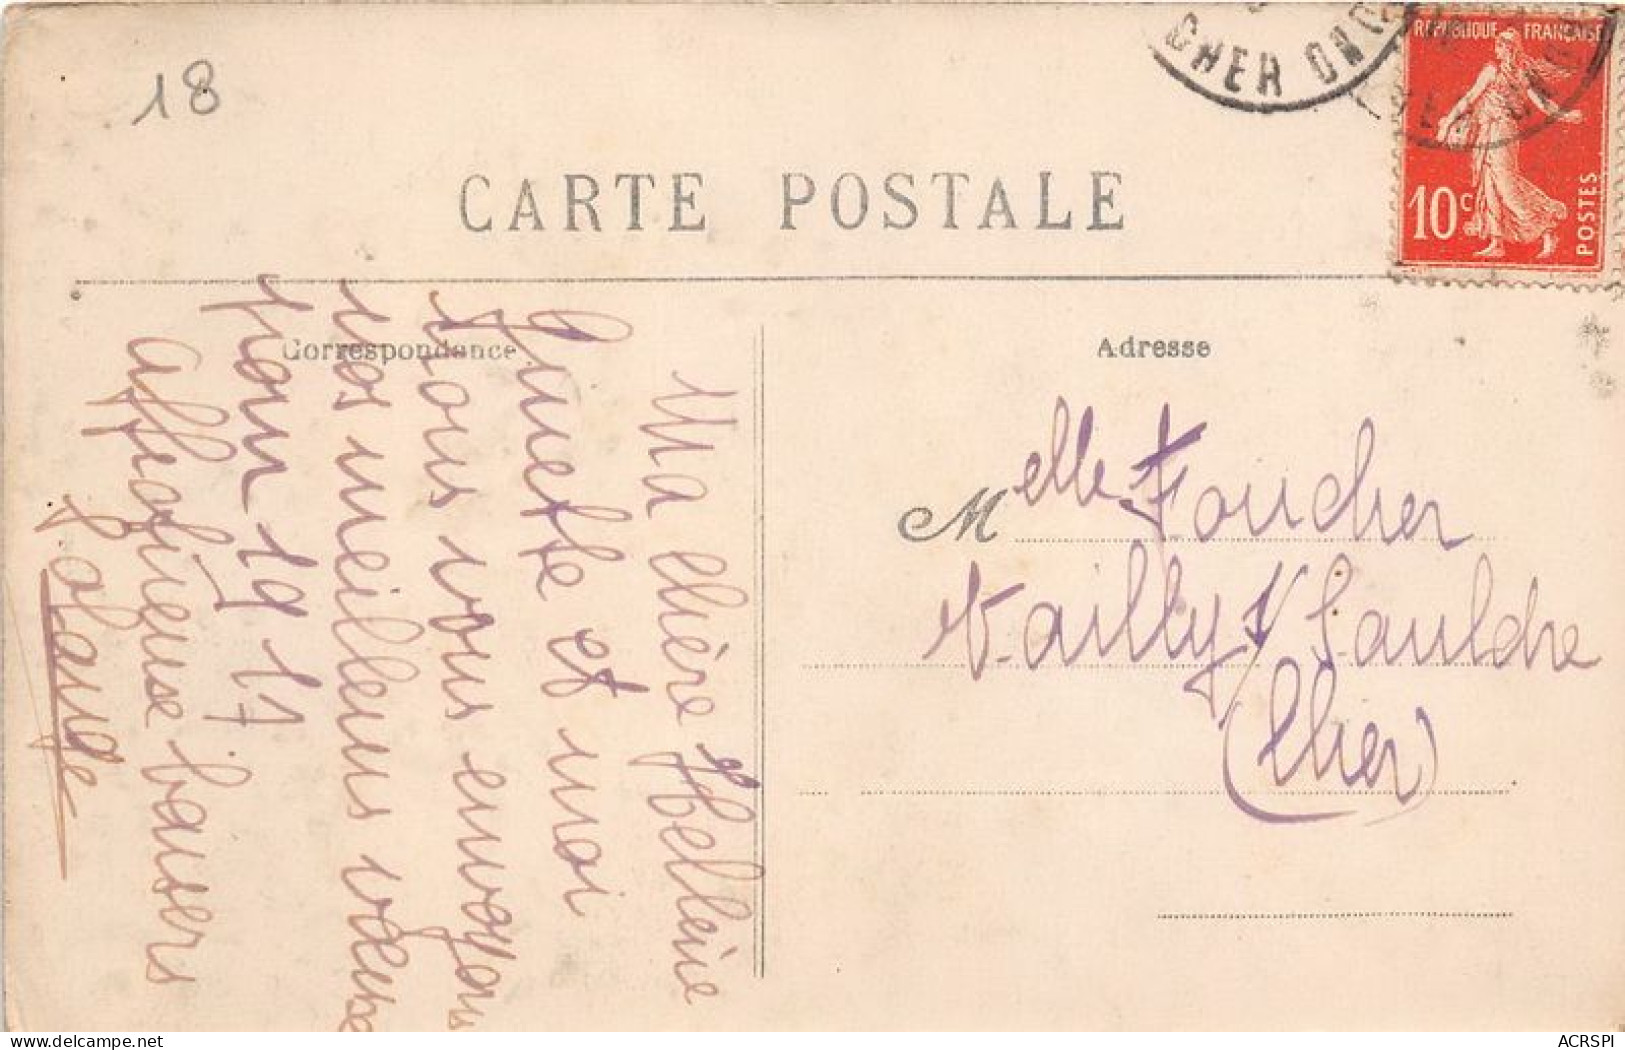 18
CHER
REPUBLIQUE FRANÇAISE
10c
POSTES
CARTE POSTALE
Correspondance
Adresse
Ma chère Hélleine
et moi
vous envoyons
nos meilleurs vœux
pour 1917
affectueuse baisers
Solange
Melle Foucher
Vailly s/ Sauldre
(Cher)
ACRSPI